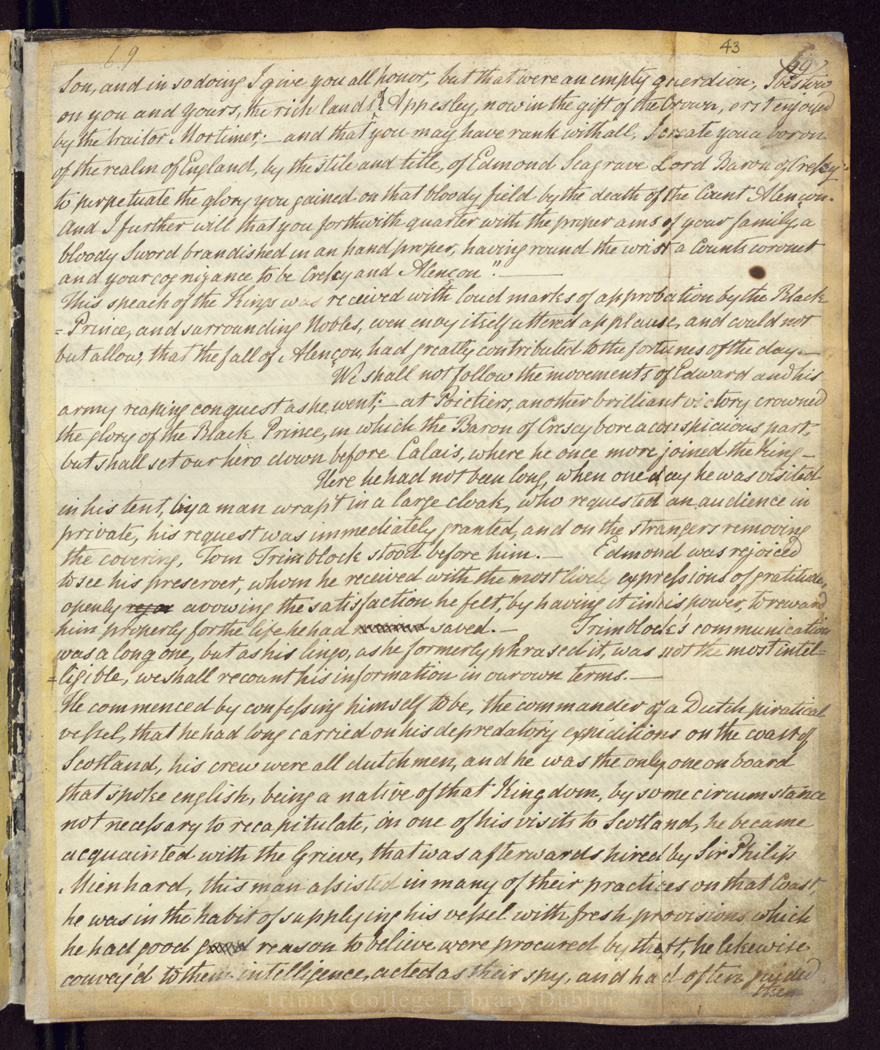 69
43
69
Son, and in so doing I give you all honor, but that were an empty guerdion, I bestow
on you and yours, the rich lands of Appesley, now in the gift of the Crown, erst enjoyed
by the traitor Mortimer; – and that you may have rank withall, I create you a baron
of the realm of England, by the stile and title, of Edmond Seagrave Lord Baron of Crescy
to perpetuate the glory you gained on that bloody field by the death of the Count Alençon.
And I further will that you forthwith quarter with the proper arms of your family, a
bloody Sword brandished in an hand proper, having round the wrist a Counts coronet
and your cognizance to be Crescy and Alençon". –
This speach of the Kings was received with loud marks of approbation by the Black
=Prince, and surrounding Nobles, even envy itself uttered applause, and could not
but allow, that the fall of Alençon, had greatly contributed to the fortunes of the day. –
We shall not follow the movements of Edward and his
army reaping conquest as he went; – at Poictiers, another brilliant victory crowned
the glory of the Black Prince, in which the Baron of Crescy bore a conspicious part,
but shall set our hero down before Calais, where he once more joined the King –
Here he had not been long, when one day he was visited
in his tent, by a man wrapt in a large cloak, who requested an audience in
private, his request was immediately granted, and on the strangers removing
the covering, Tom Trimblock stood before him. – Edmond was rejoiced
to see his preserver, whom he received with the most lively expressions of gratitude,
openly avowing the satisfaction he felt, by having it in his power, to reward
him properly for the life he had saved. – Trimblock's communication
was a long one, but as his lingo, as he formerly phrased it, was not the most intel=
=ligible, we shall recount his information in our own terms. –
He commenced by confessing himself to be, the commander of a Dutch piratical
vessel, that he had long carried on his depredatory expiditions on the coast of
Scotland, his crew were all dutchmen, and he was the only one on board
that spoke english, being a native of that Kingdom, by some circumstance
not necessary to recapitulate, in one of his visits to Scotland, he became
acquainted with the Grieve, that was afterwards hired by Sir Philip
Mienhard, this man assisted in many of their practices on that Coast,
he was in the habit of supplying his vessel with fresh provisions which
he had good reason to believe were procured by theft, he likewise
convey'd to them intelligence, acted as their spy, and had often guided
them
Trinity College Library Dublin